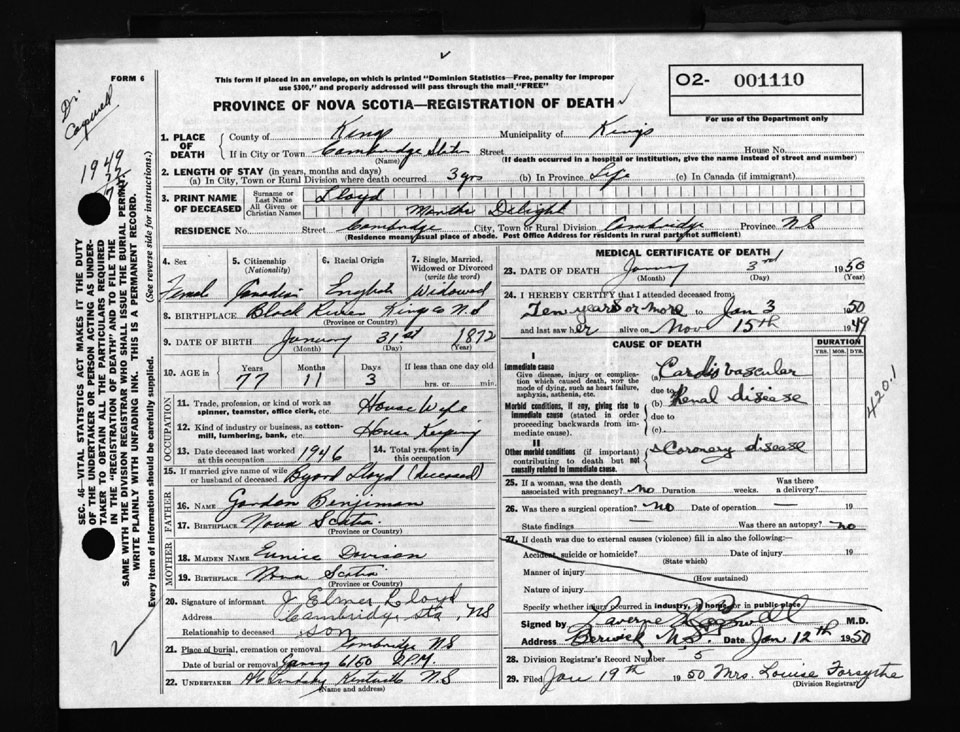 FORM 6
This form if placed in an envelope, on which is printed "Dominion Statistics—Free, penalty for improper
use $300," and properly addressed will pass through the mail "FREE"
PROVINCE OF NOVA SCOTIA—REGISTRATION OF DEATH
O2- 001110
For use of the Department only
Dr.
Cogswell
1949
1. PLACE OF DEATH
County of Kings Municipality of Kings
If in City or Town Cambridge Station Street House No.
(Name) (If death occurred in a hospital or institution, give the name instead of street and number)
2. LENGTH OF STAY (in years, months and days)
(a) In City, Town or Rural Division where death occurred 3 yrs (b) In Province Life (c) In Canada (if immigrant)
3. PRINT NAME OF DECEASED
Surname or Last Name Lloyd
All Given or Christian Names Delight
RESIDENCE No. Street Cambridge City, Town or Rural Division Cambridge Province N S
(Residence means usual place of abode. Post Office Address for residents in rural parts not sufficient)
4. Sex 5. Citizenship (Nationality) 6. Racial Origin 7. Single, Married, Widowed or Divorced (write the word)
Female Canadian English Widowed
8. BIRTHPLACE Black River Kings Co N.S
(Province or Country)
9. DATE OF BIRTH January 31st 1872
(Month) (Day) (Year)
10. AGE in Years Months Days If less than one day old
77 11 3 hrs. or min.
OCCUPATION
11. Trade, profession, or kind of work as spinner, teamster, office clerk, etc. House Wife
12. Kind of industry or business, as cotton-mill, lumbering, bank, etc. House Keeping
13. Date deceased last worked at this occupation 1946 14. Total yrs. spent in this occupation
15. If married give name of wife or husband of deceased Byard Lloyd (deceased)
FATHER
16. Name Gordon Benjiman
17. Birthplace Nova Scotia
(Province or Country)
MOTHER
18. Maiden Name Eunice Davison
19. Birthplace Nova Scotia
(Province or Country)
20. Signature of informant J Elmer Lloyd
Address Cambridge Sta, NS
Relationship to deceased son
21. Place of burial, cremation or removal Cambridge N S
Date of burial or removal 6 1950 2 P.M.
22. UNDERTAKER Kentville N.S
(Name and address)
MEDICAL CERTIFICATE OF DEATH
23. DATE OF DEATH January 3rd 1950
(Month) (Day) (Year)
24. I HEREBY CERTIFY that I attended deceased from:
Ten years or more to Jan 3 1950
and last saw her alive on Nov 15th 1949
CAUSE OF DEATH DURATION
YRS. MOS. DYS.
I
Immediate cause
Give disease, injury or complication which caused death, NOT the mode of dying, such as heart failure, asphyxia, asthenia, etc.
(a) Cardio vascular
due to
Morbid conditions, if any, giving rise to immediate cause (stated in order proceeding backwards from immediate cause).
(b) Renal disease
due to
(c)
II
Other morbid conditions (if important) contributing to death but not causally related to immediate cause.
Coronary disease
4201
25. If a woman, was the death associated with pregnancy? no Duration weeks. Was there a delivery?
26. Was there a surgical operation? no Date of operation — 19
State findings — Was there an autopsy? no
27. If death was due to external causes (violence) fill in also the following:—
Accident, suicide or homicide? Date of injury 19
(State which)
Manner of injury
(How sustained)
Nature of injury
Specify whether injury occurred in industry, in home, or in public place
Signed by Laverne Cogswell M.D.
Address Berwick N.S. Date Jan 12th 1950
28. Division Registrar's Record Number 5
29. Filed Jan 19th 1950 Mrs. Louise Forsythe
(Division Registrar)
SEC. 46—VITAL STATISTICS ACT MAKES IT THE DUTY
OF THE UNDERTAKER OR PERSON ACTING AS UNDER-
TAKER TO OBTAIN ALL THE PARTICULARS REQUIRED
IN THE "REGISTRATION OF DEATH" AND TO FILE THE
SAME WITH THE DIVISION REGISTRAR WHO SHALL ISSUE THE BURIAL PERMIT
WRITE PLAINLY WITH UNFADING INK. THIS IS A PERMANENT RECORD.
Every item of information should be carefully supplied. (See reverse side for instructions.)